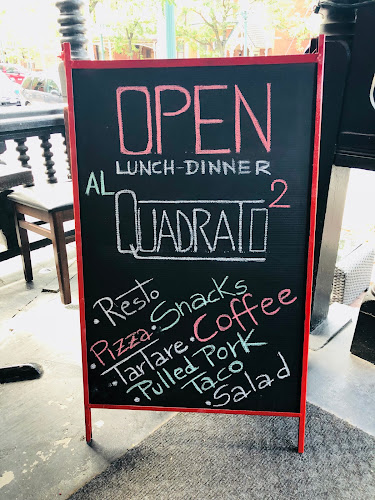 OPEN
LUNCH-DINNER
AL QUADRATO 2
· Resto
· Pizza · Snacks
· Tartare · Coffee
· Pulled Pork
Taco
· Salad